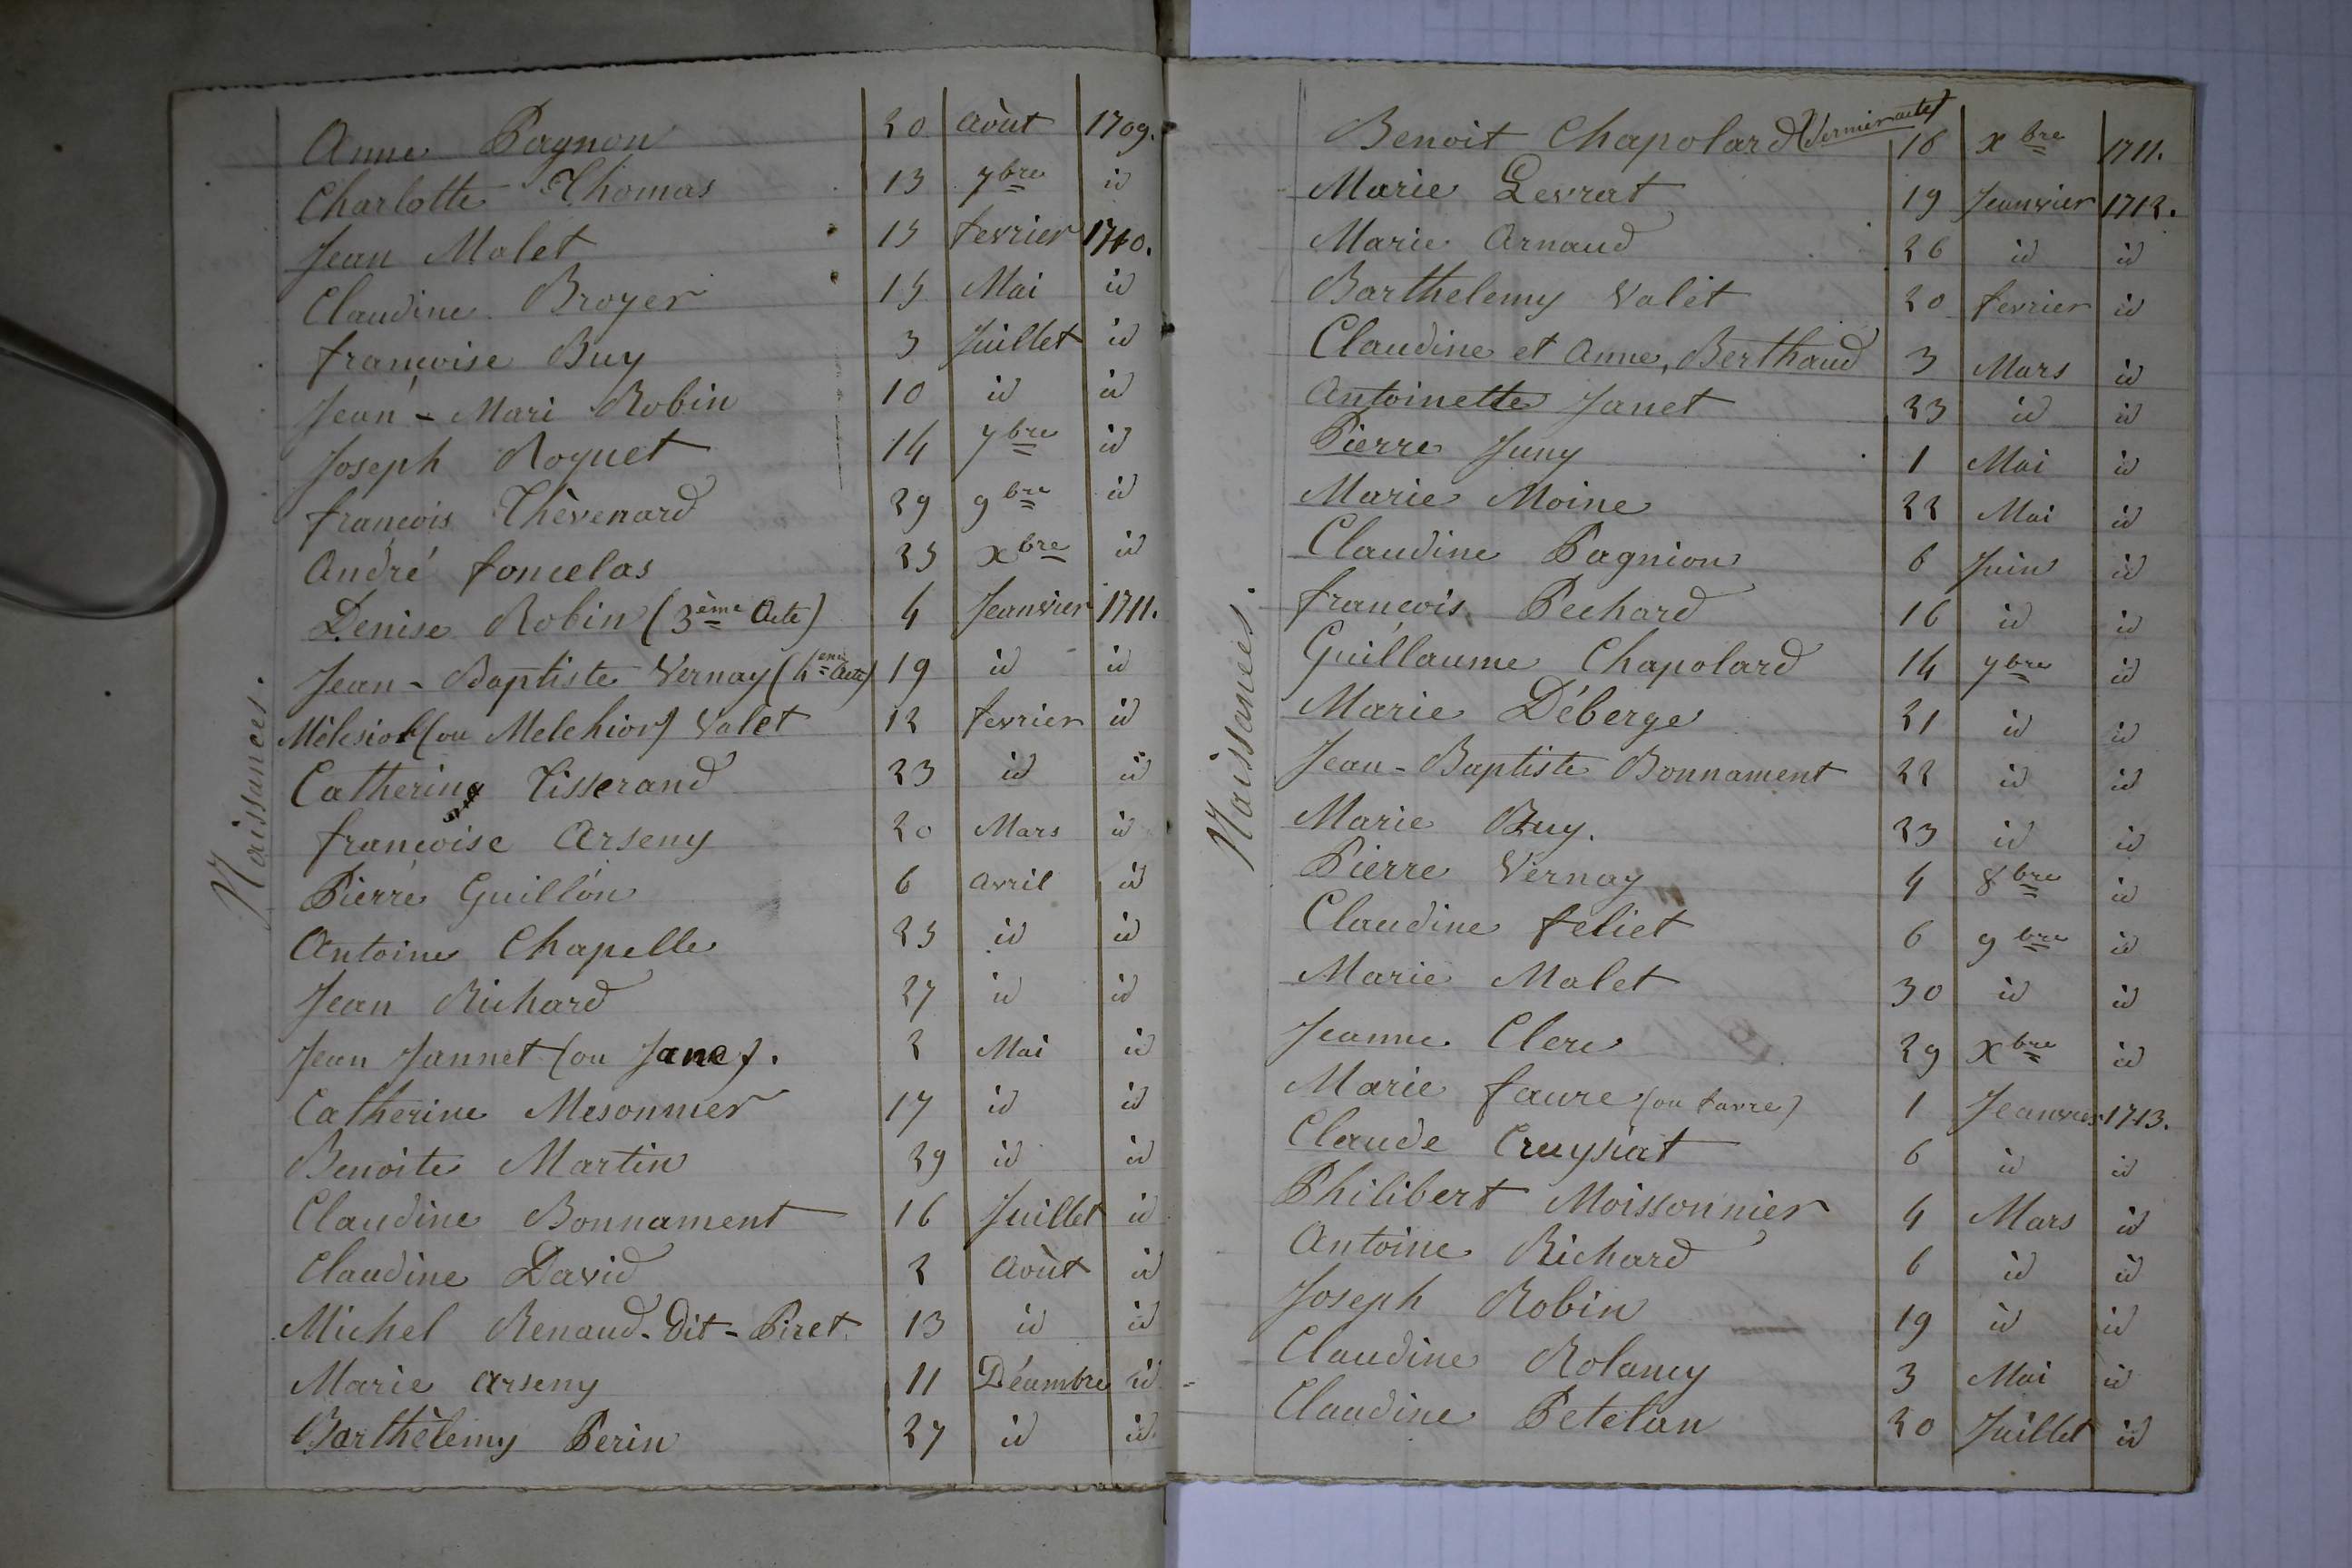 Naissances.
Anne Pagnon 20 Août 1709.
Charlotte Thomas 13 7bre id
Jean Malet 15 fevrier 1710.
Claudine Broyer 15 Mai id
françoise Buy 3 Juillet id
Jean-Mari Robin 10 id id
Joseph Roguet 14 7bre id
françois Thèvenard 29 9bre id
André foncelas 25 xbre id
Denise Robin (3ème Acte) 4 Jeanvier 1711.
Jean-Baptiste Vernay (4ème Acte) 19 id id
Mélesiol (ou Melchior) Valet 12 fevrier id
Catherine Tisserand 23 id id
françoise Arseny 20 Mars id
Pierre Guillon 6 Avril id
Antoine Chapelle 25 id id
Jean Richard 27 id id
Jean Jannet (ou Janet). 2 Mai id
Catherine Mesonnier 17 id id
Benoite Martin 29 id id
Claudine Bonnament 16 Juillet id
Claudine David 2 Août id
Michel Renaud-Dit-Piret 13 id id
Marie Arseny 11 Décembre id
Barthèlemy Perin 27 id id
Naissances.
Benoit Chapolard (dernier acte) 18 xbre 1711.
Marie Levrat 19 Jeanvier 1712.
Marie Arnaud 26 id id
Barthelemy Valet 20 fevrier id
Claudine et Anne, Berthaud 3 Mars id
Antoinette Janet 23 id id
Pierre Juny 1 Mai id
Marie Moine 22 Mai id
Claudine Pagnion 6 Juin id
françois Pechard 16 id id
Guillaume Chapolard 14 7bre id
Marie Déberge 21 id id
Jean-Baptiste Bonnament 22 id id
Marie Buy. 23 id id
Pierre Vernay 4 8bre id
Claudine feliet 6 9bre id
Marie Malet 30 id id
Jeanne Clerc 29 Xbre id
Marie faure (ou favre) 1 Jeanvier 1713.
Claude Cruysiat 6 id id
Philibert Moissonnier 4 Mars id
Antoine Richard 6 id id
Joseph Robin 19 id id
Claudine Rolancy 3 Mai id
Claudine Petelan 20 Juillet id